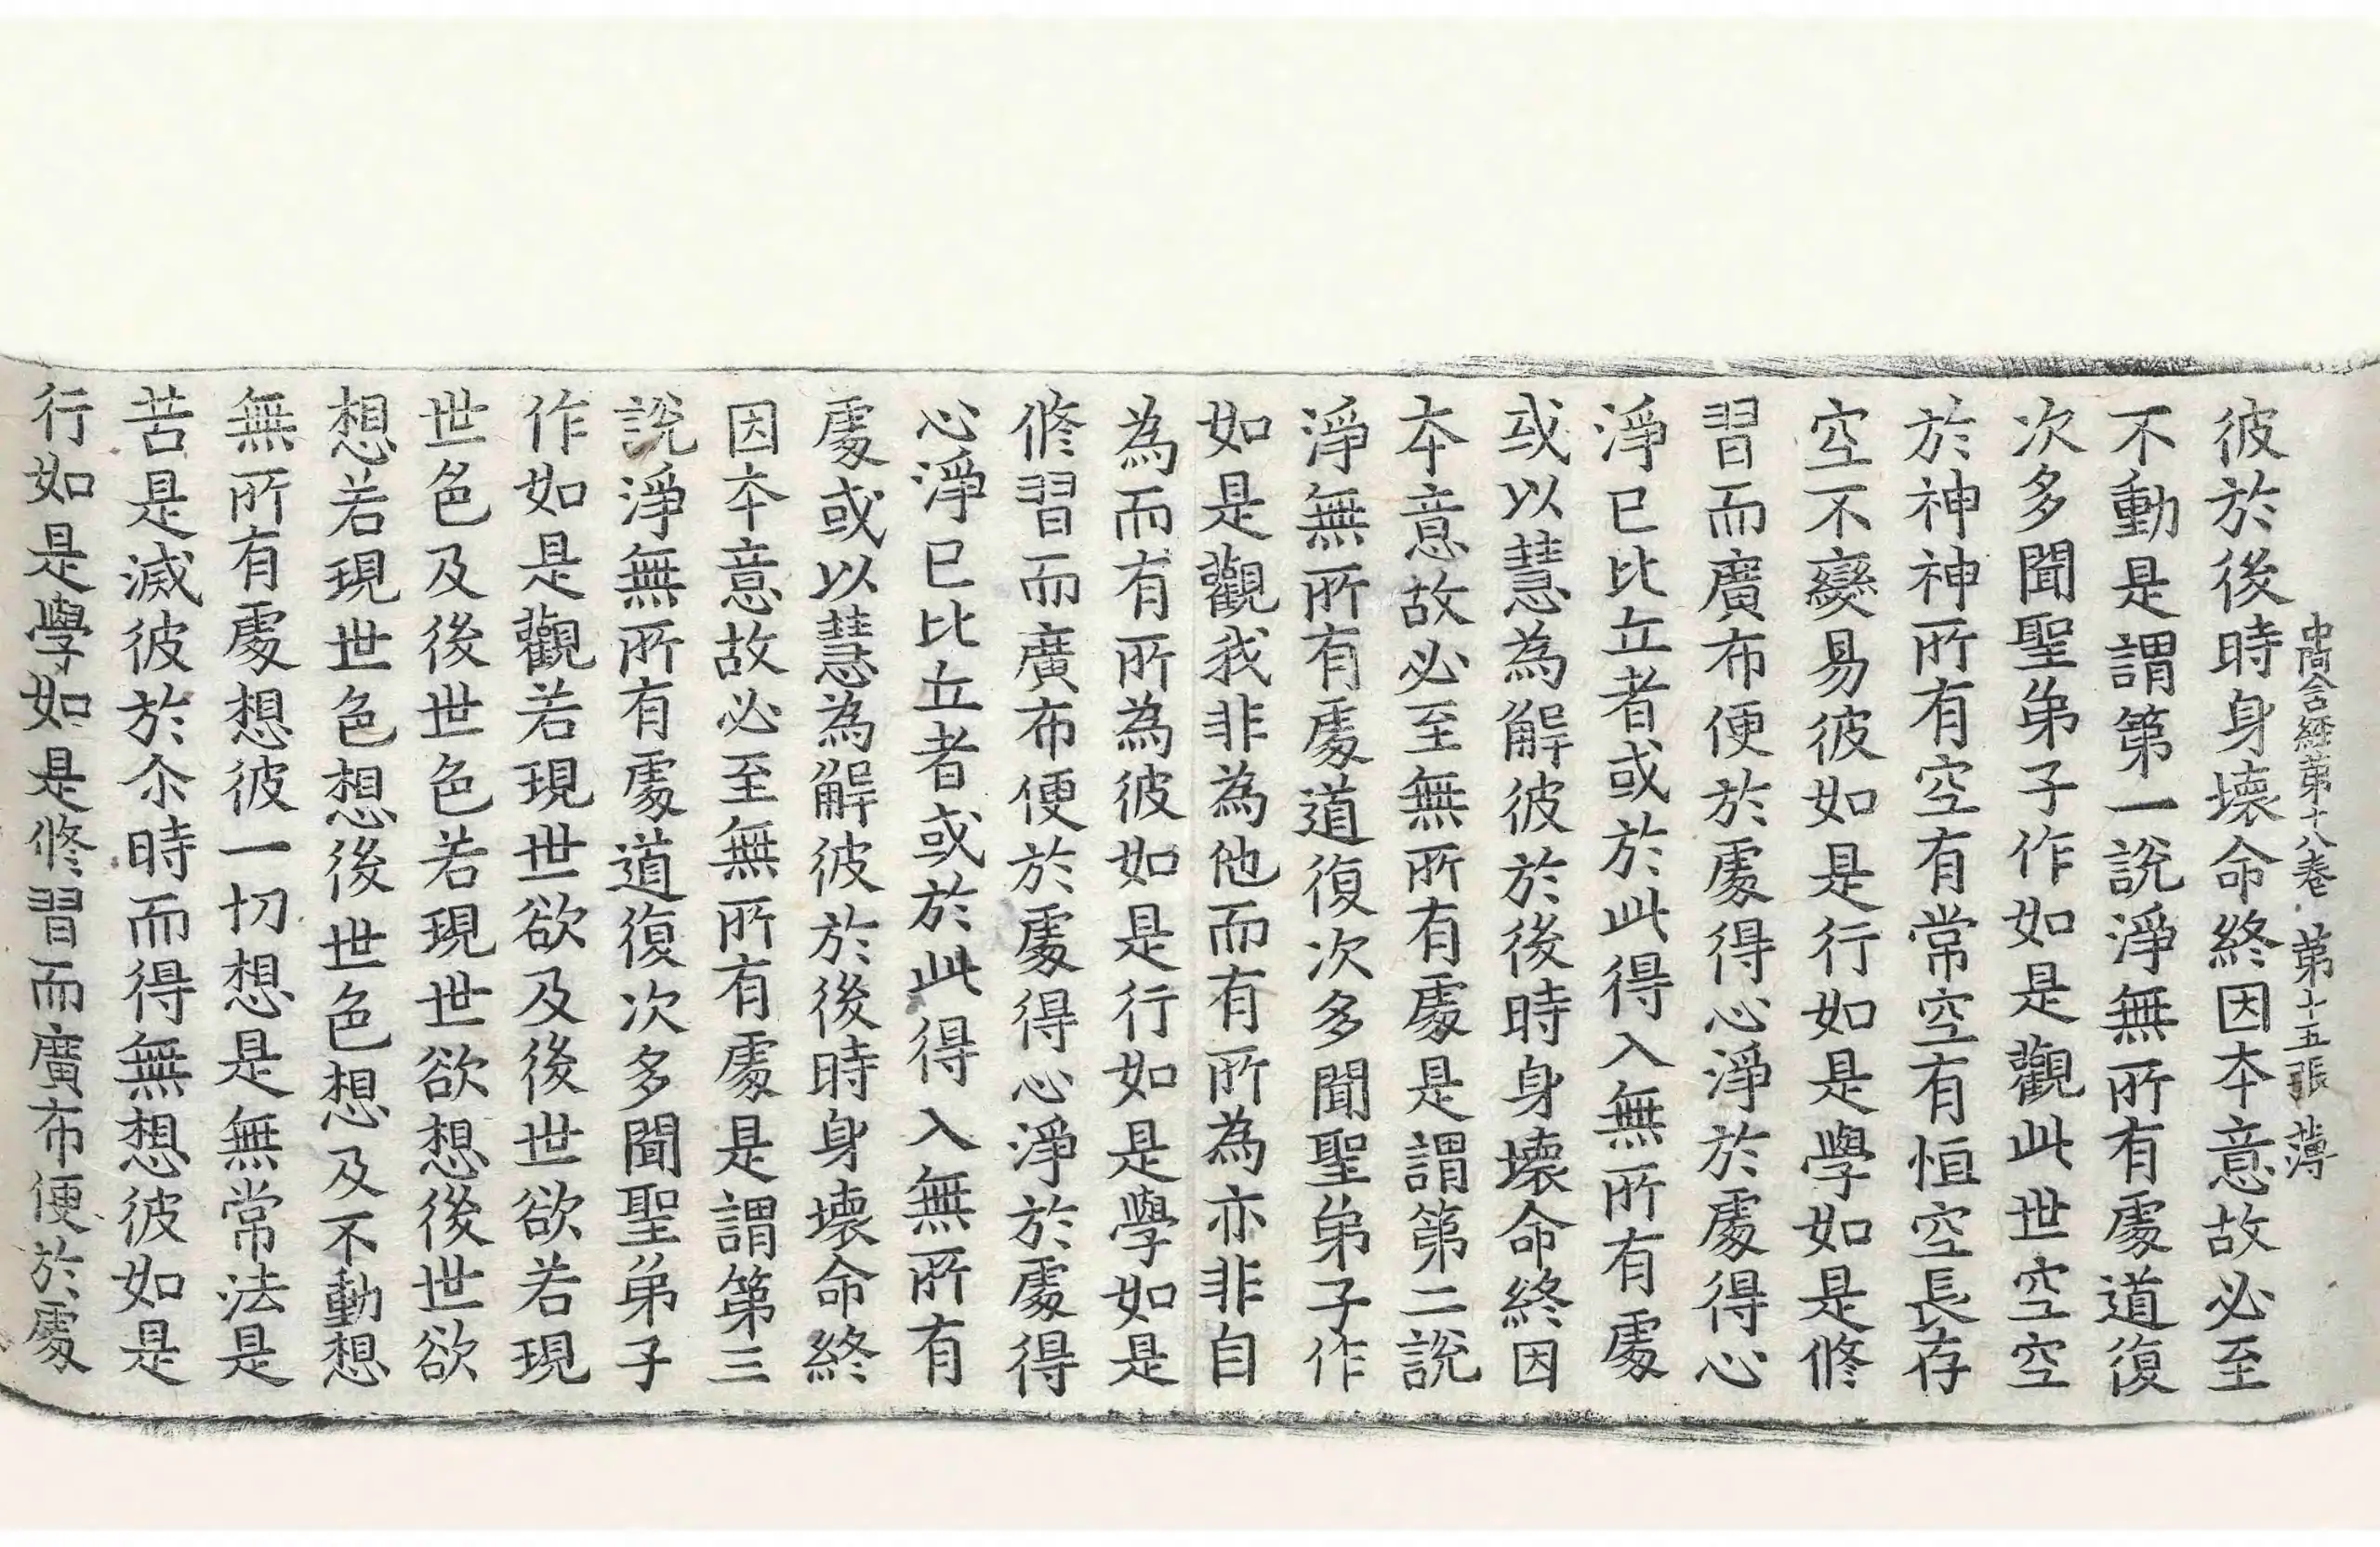 中阿含経第十八巻 第十五張 薄
彼於後時身壞命終因本意故必至
不動是謂第一說淨無所有處道復
次多聞聖弟子作如是觀此世空空
於神神所有空有常空有恒空長存
空不變易彼如是行如是學如是修
習而廣布便於處得心淨於處得心
淨已比丘者或於此得入無所有處
或以慧為解彼於後時身壞命終因
本意故必至無所有處是謂第二說
淨無所有處道復次多聞聖弟子作
如是觀我非為他而有所為亦非自
為而有所為彼如是行如是學如是
修習而廣布便於處得心淨於處得
心淨已比丘者或於此得入無所有
處或以慧為解彼於後時身壞命終
因本意故必至無所有處是謂第三
說淨無所有處道復次多聞聖弟子
作如是觀若現世欲及後世欲若現
世色及後世色若現世欲想後世欲
想若現世色想後世色想及不動想
無所有處想彼一切想是無常法是
苦是滅彼於尒時而得無想彼如是
行如是學如是修習而廣布便於處